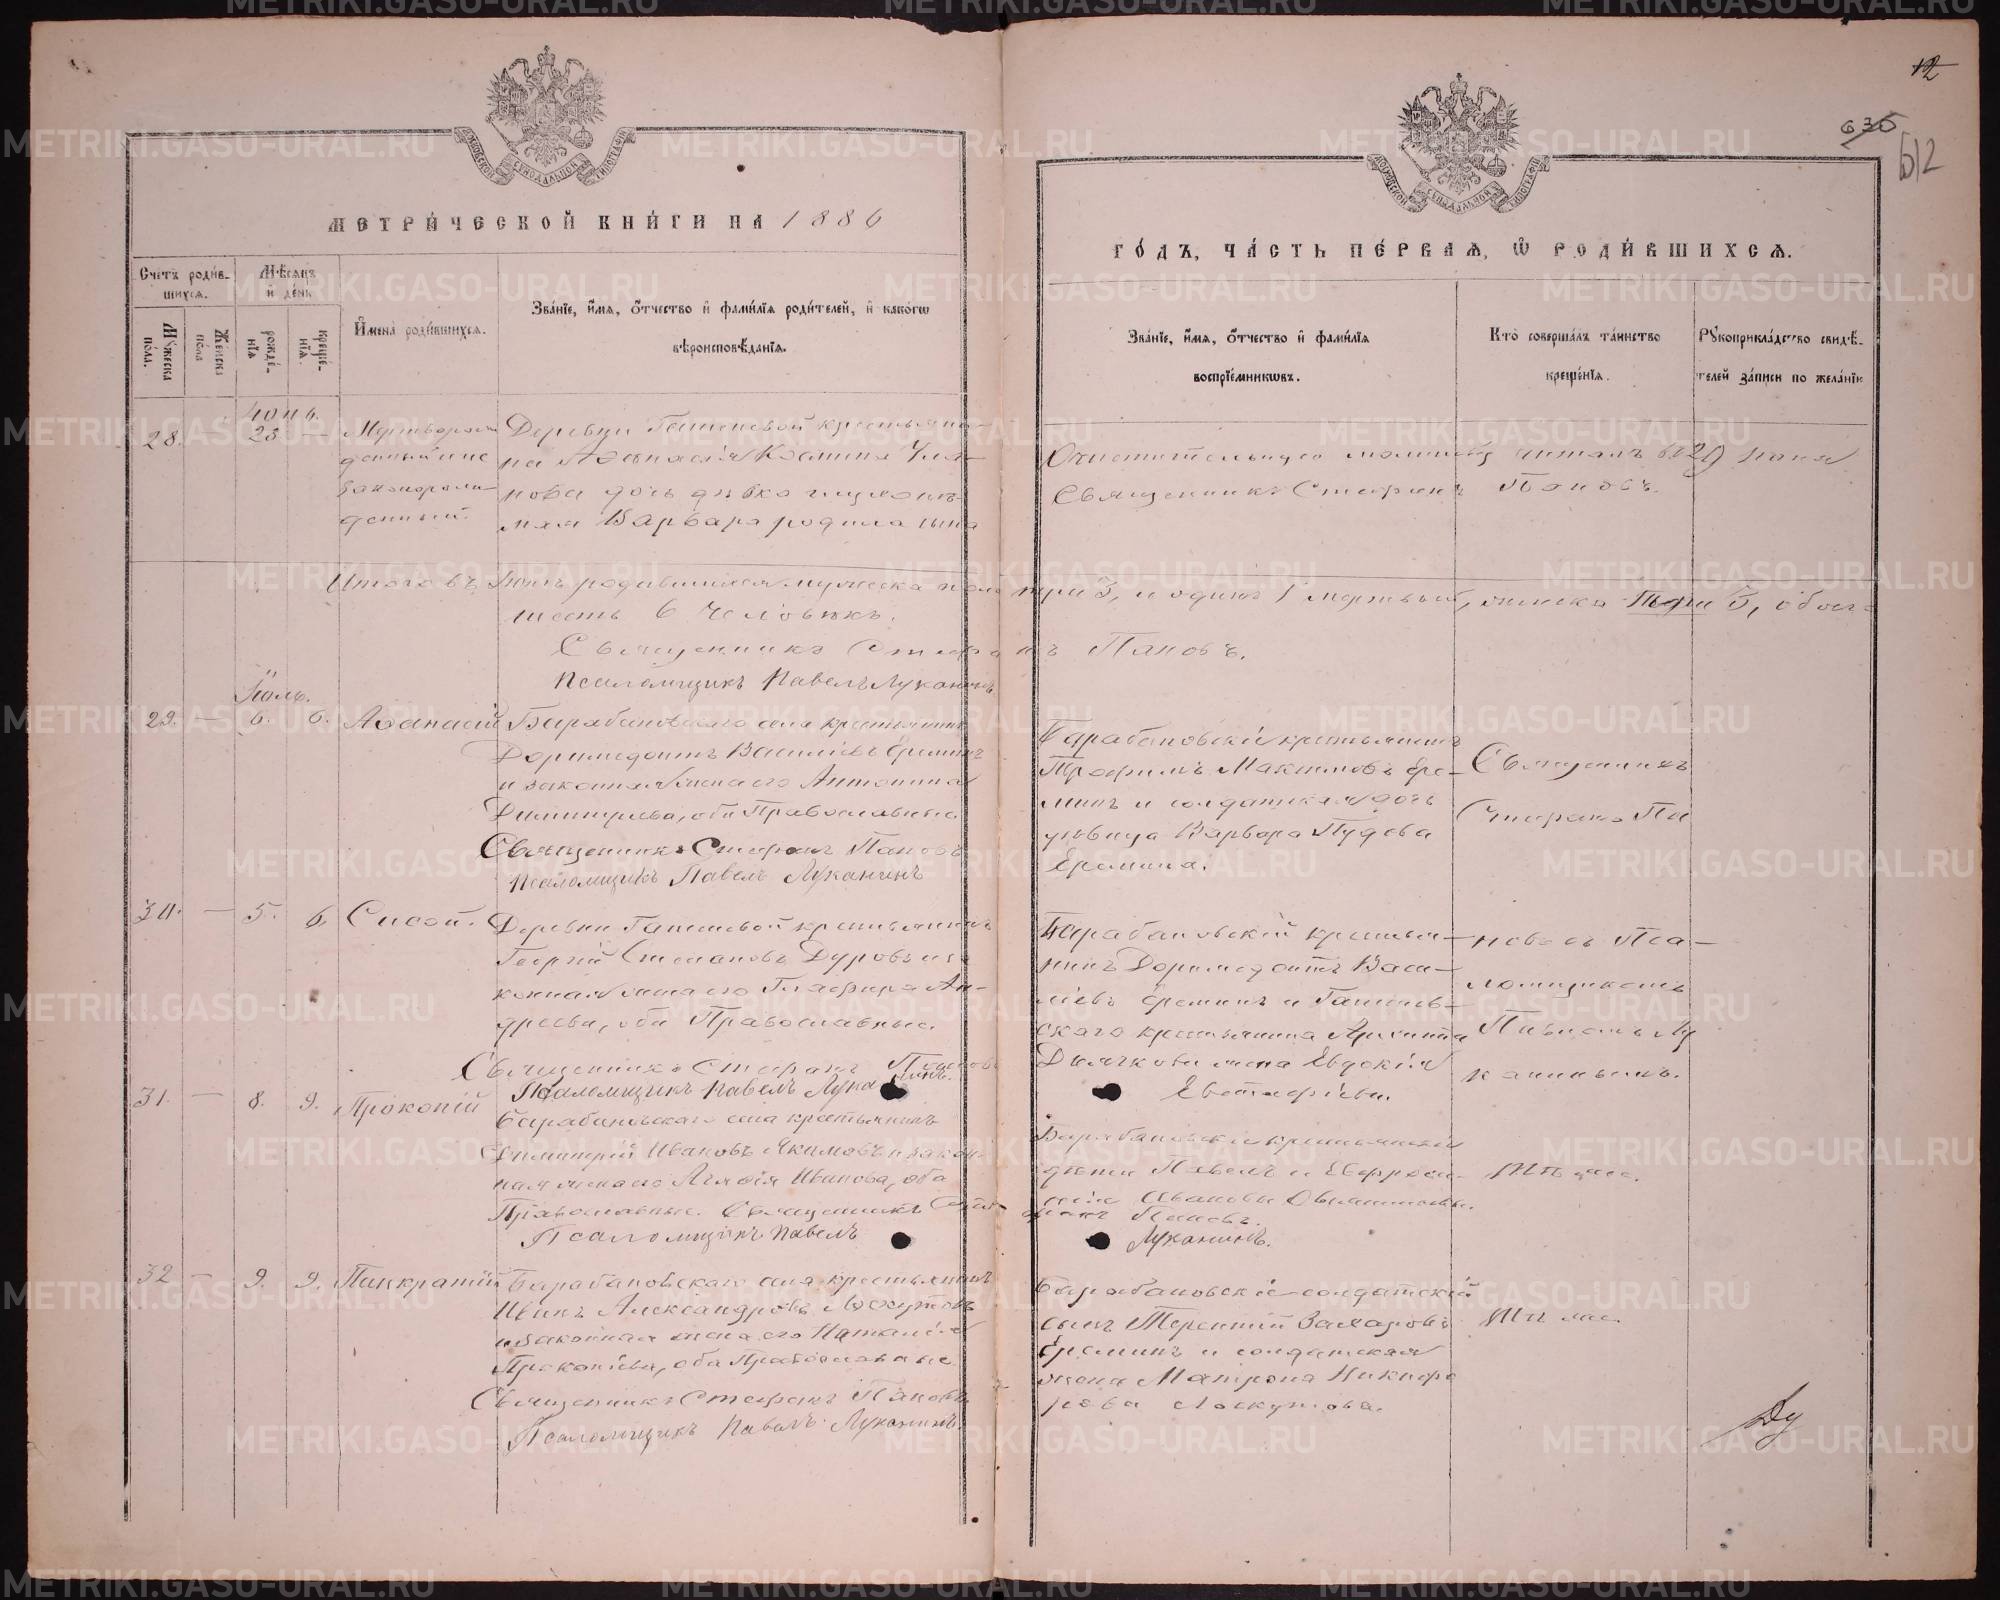 12
635
512
МОСКОВСКОЙ СУНОДАЛЬНОЙ ТИПОГРАФІИ
МОСКОВСКОЙ СУНОДАЛЬНОЙ ТИПОГРАФІИ
МЕТРИ́ЧЕСКОЙ КНИ́ГИ НА 1886
ГО́ДЪ, ЧА́СТЬ ПЕ́РВАЯ, Ѡ РОДИ́ВШИХСЯ.
Счетъ роди́в-
шихся.
Мѣсяцъ
и день
Мꙋжеска по́ла.
Же́нска по́ла
рожде́-нїя
креще́-нїя.
И҆мена̀ роди́вшихся.
Зва́нїе, и҆́мя, ѻ҆́тчество и҆ фами́лїя роди́телей, и҆ како́гѡ
вѣроисповѣ́данїя.
Зва́нїе, и҆́мя, ѻ҆́тчество и҆ фами́лїя
воспрїе́мникѡвъ.
Кто̀ соверша́лъ та́инство
креще́нїя.
Рꙋкоприкла́дство свидѣ́-
телей за́писи по жела́нїю
Іюнь.
28. 23 — Мертворож
денный и не
законорож-
денный.
Деревни Гашеневой крестьяни-
на Аѳанасія Козмина Уля-
нова дочь девка
Варвара родила сына
Очистительную молитву читалъ Іюня
Священникъ Стефанъ Пановъ.
Итого въ Іюнѣ родившихся мужеска пола три 3, и одинъ 1 мертвый, женска три 3, обоего
шесть 6 человѣкъ.
Священникъ Стефанъ Пановъ.
Псаломщикъ Павелъ Луканинъ
Іюль.
29. — 6. 6. Аѳанасій
Барабановскаго села крестьянинъ
Доримедонтъ Василіевъ Еремин
и законная жена его Антонина
Димитріева, оба Православные
Священникъ Стефанъ Пановъ
Псаломщикъ Павелъ Луканинъ
Барабановскій крестьянинъ
Трофимъ Максимовъ Ере-
минъ и солдатская дочь
дѣвица Варвара Пудова
Еремина.
Священникъ
Стефанъ Па
30. — 5. 6. Сисой.
Деревни Гашеневой крестьянинъ
Георгій Степановъ Дуровъ и за
конная жена его Глафира Ан-
дреева, оба Православные.
Священникъ Стефанъ Пановъ
Псаломщикъ Павелъ Луканинъ.
Барабановскій крестья-
нинъ Доримедонтъ Васи-
ліевъ Ереминъ и Гашенев-
скаго крестьянина Архиппа
Дьячкова жена Евдокія
Евстафіева.
новъ съ Пса-
ломщикомъ
Павломъ Лу
канинымъ.
31. — 8. 9. Прокопій
Барабановскаго села крестьянинъ
Димитрій Ивановъ Якимовъ и закон-
ная жена его Агаѳія Иванова, оба
Православные. Священникъ Стефанъ Пановъ.
Псаломщикъ Павелъ Луканинъ.
Барабановскіе крестьянскіе
дѣти Павелъ и Евфроси-
нія Ивановы
Тѣ же.
32 — 9. 9. Панкратій
Барабановскаго села крестьянинъ
Иванъ Александровъ Лоскутовъ
и законная жена его Наталія
Прокопіева, оба Православные
Священникъ Стефанъ Пановъ
Псаломщикъ Павелъ Луканинъ.
Барабановскіе солдатскій
сынъ Терентій Захаровъ
Ереминъ и солдатская
жена Матрона Никифо
рова Лоскутова.
Тѣ же.
METRIKI.GASO-URAL.RU